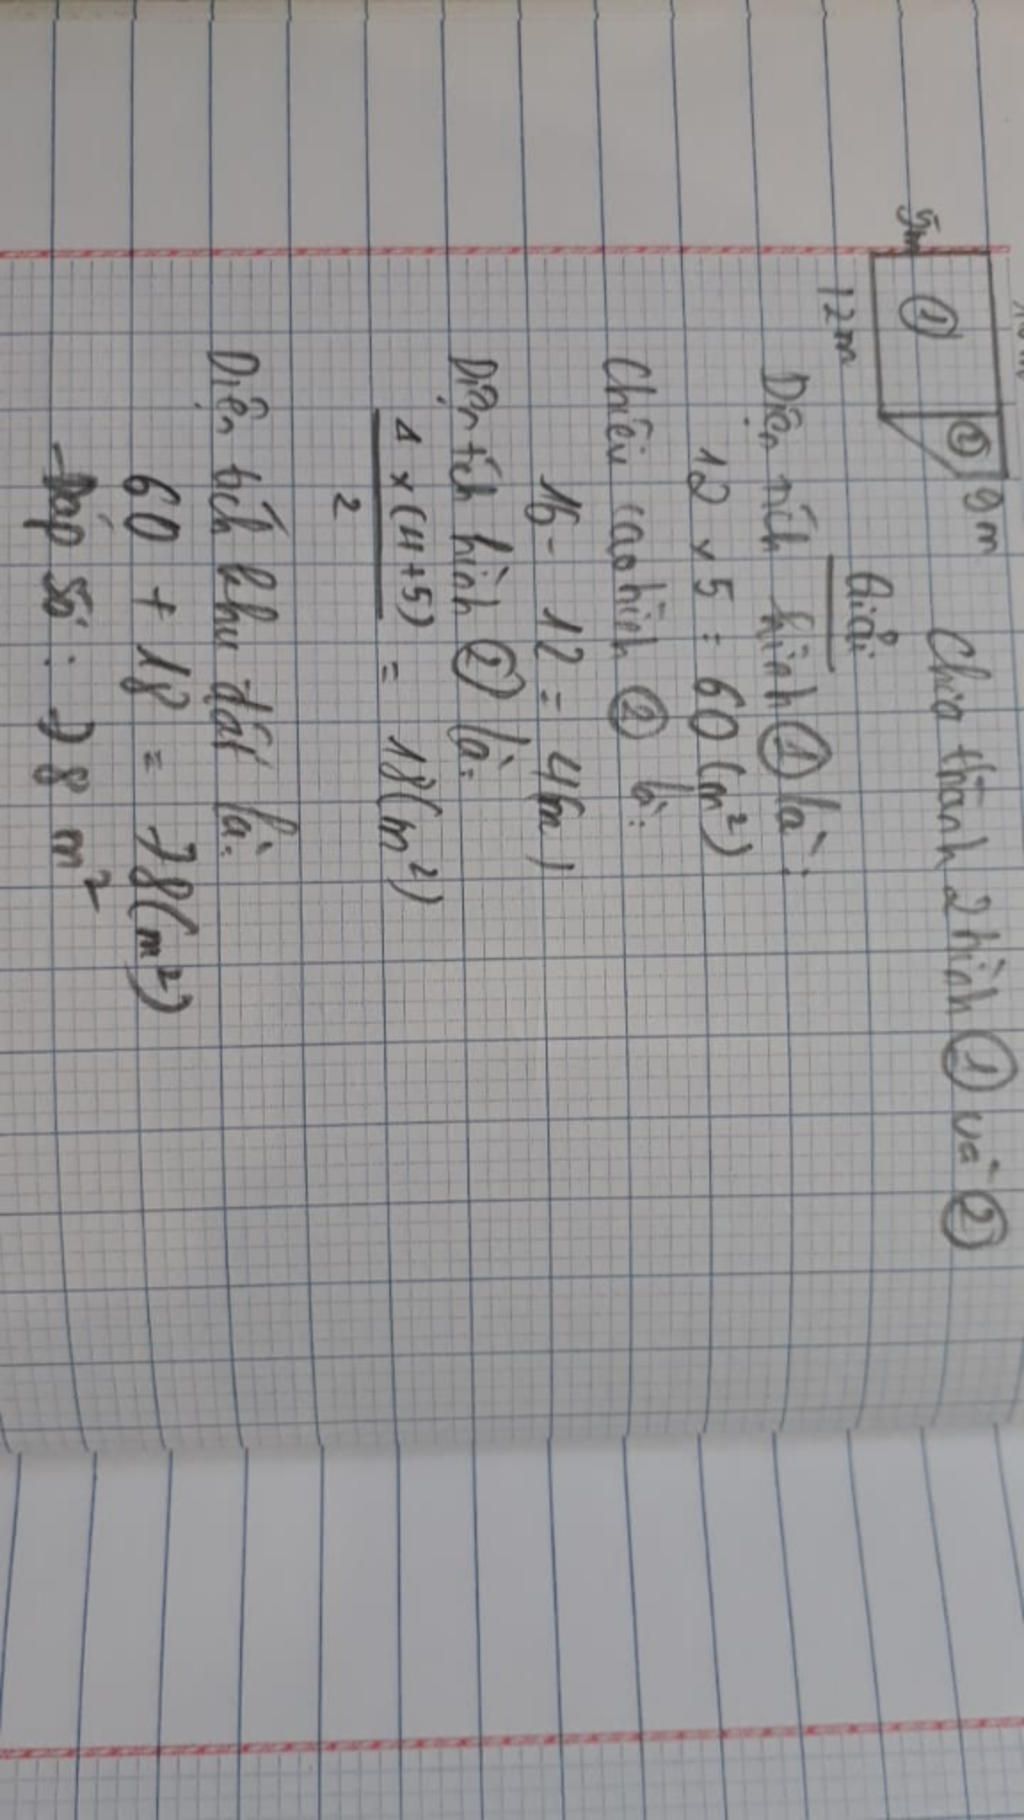 5m
①
②
9m
12m
Chia thành 2 hình ① và ②
Giải
Diện tích hình ① là:
12 x 5 = 60 (m²)
Chiều cao hình ② là:
16 - 12 = 4(m)
Diện tích hình ② là:
4 x (4+5)
2
= 18(m²)
Diện tích khu đất là:
60 + 18 = 78(m²)
Đáp số: 78 m²